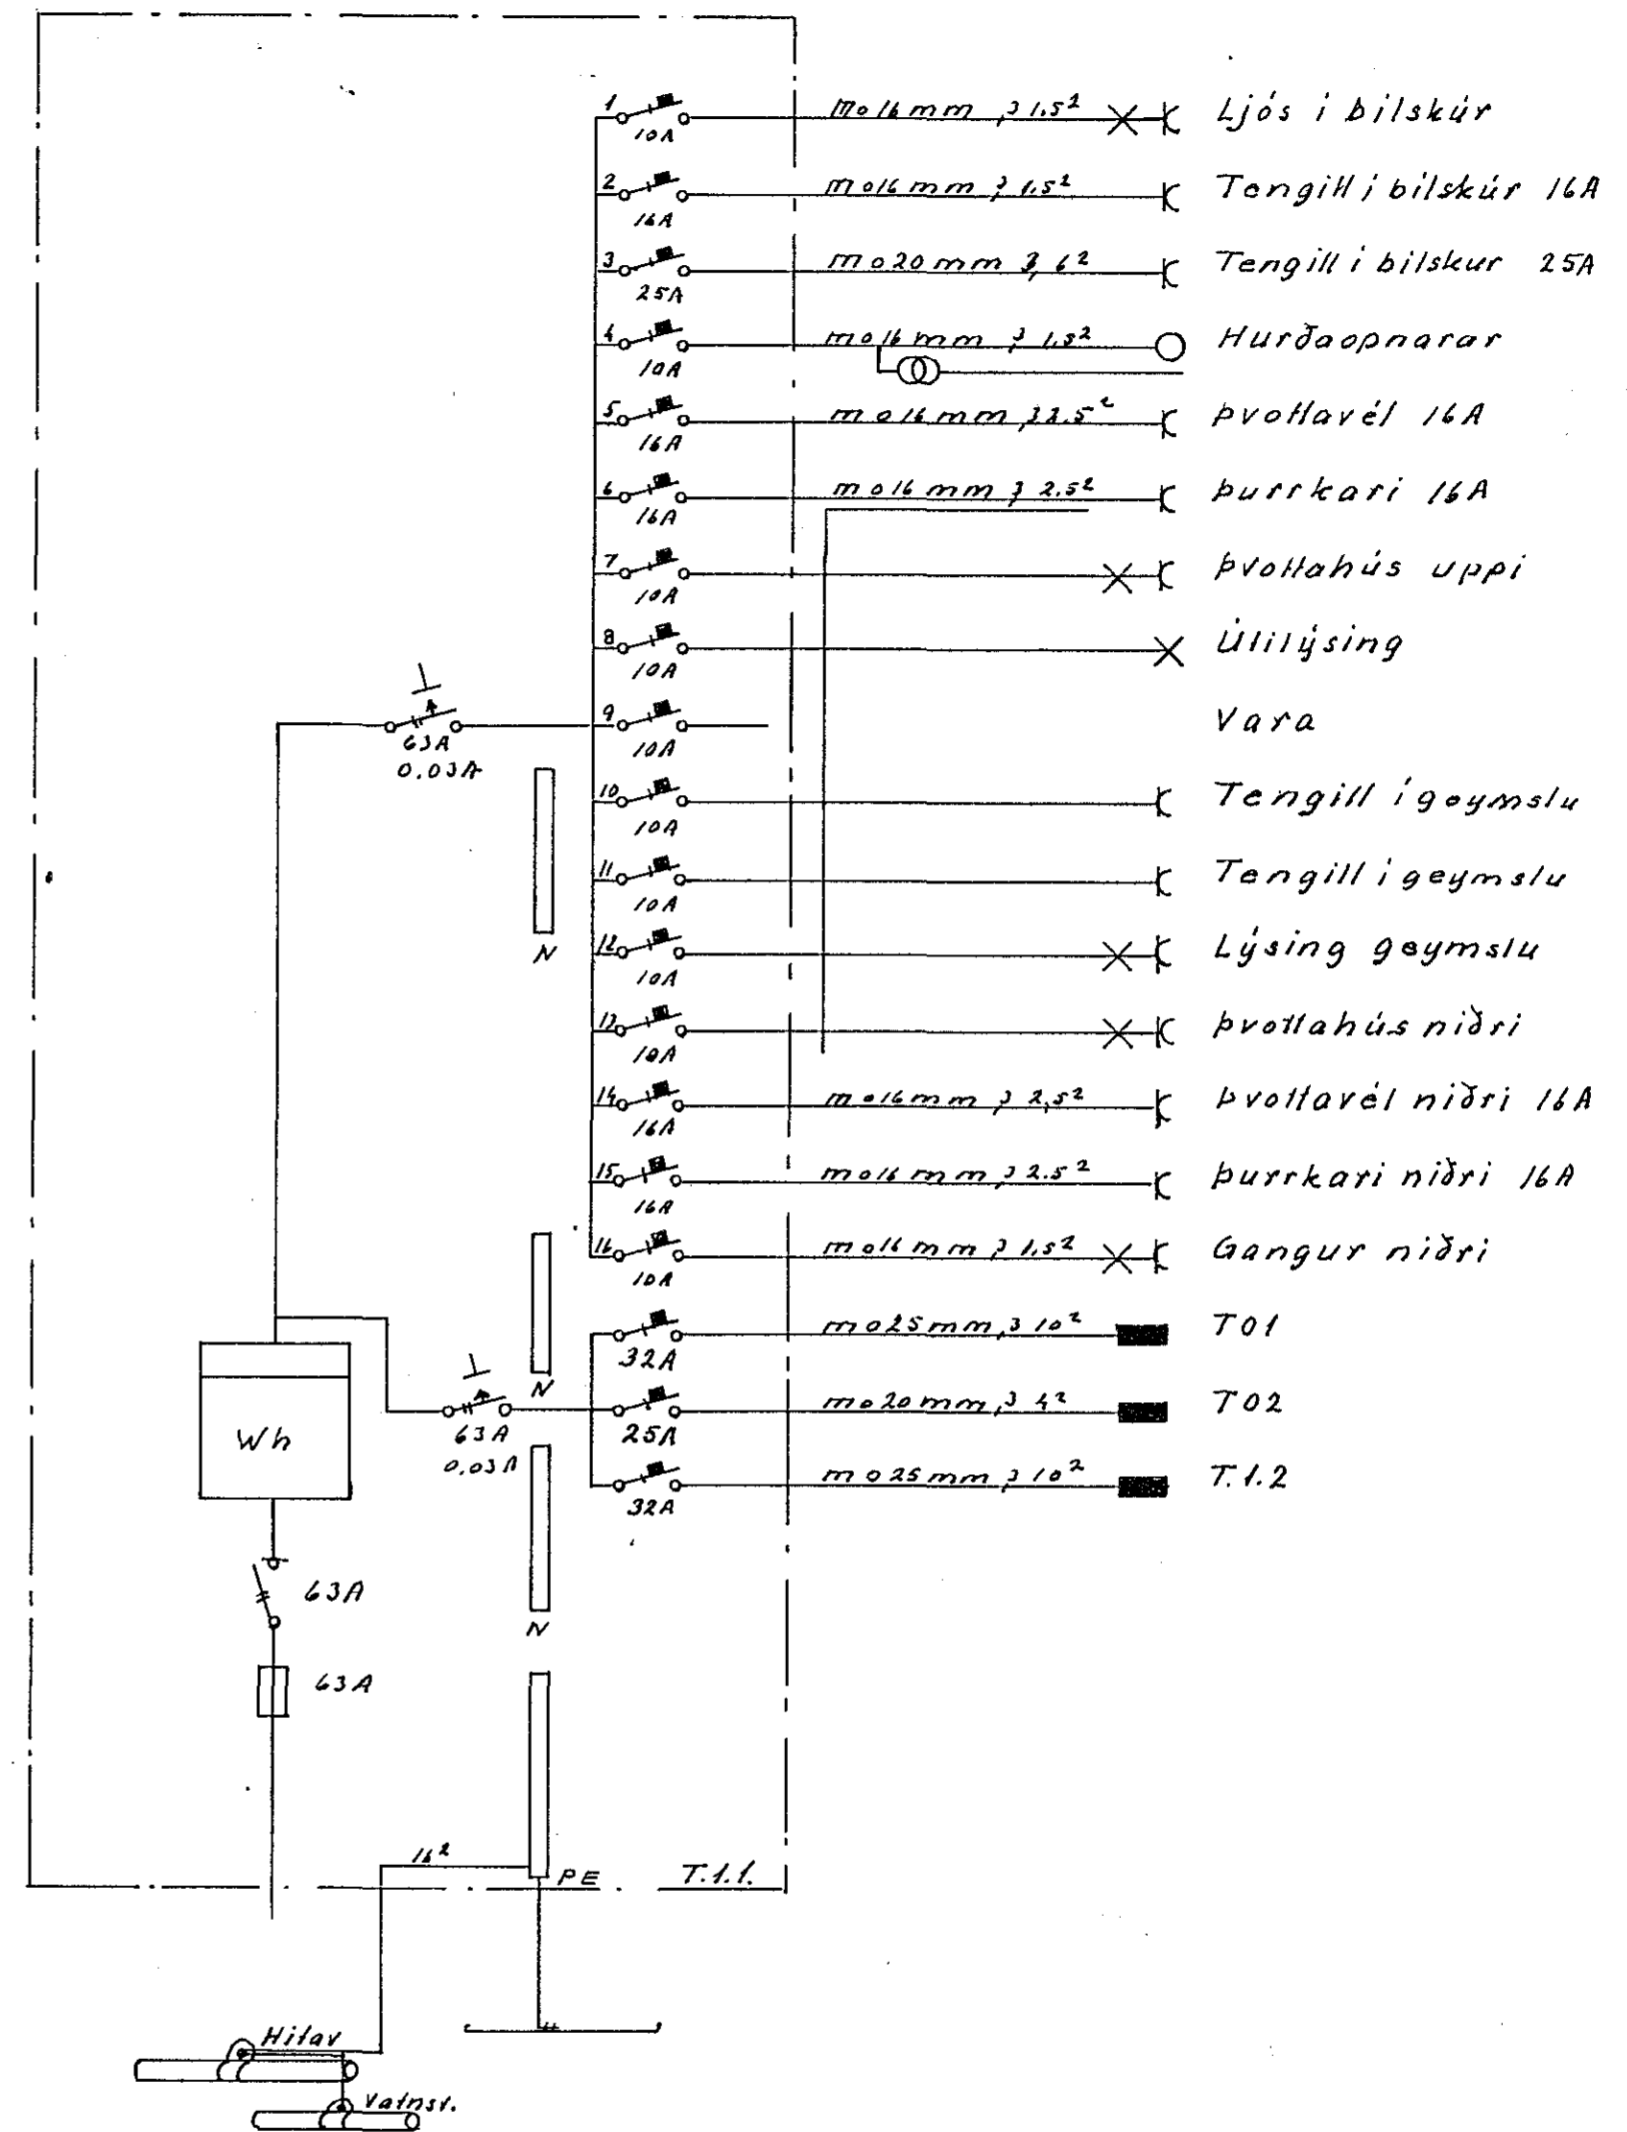 1 10A mo16mm, 3 1.5² Ljós i bilskúr
2 16A mo16mm, 3 1.5² Tengill i bilskúr 16A
3 25A mo20mm 3, 6² Tengill i bilskur 25A
4 10A mo16mm, 3 1.5² Hurðaopnarar
5 16A mo16mm, 3 2.5² Þvottavél 16A
6 16A mo16mm, 3 2.5² Þurrkari 16A
7 10A Þvottahús uppi
8 10A Útilýsing
63A
0.03A
9 10A Vara
10 10A Tengill í geymslu
11 10A Tengill i geymslu
N
12 10A Lýsing geymslu
13 10A Þvottahús niðri
14 16A mo16mm, 3 2,5² Þvottavél niðri 16A
15 16A mo16mm, 3 2.5² Þurrkari niðri 16A
16 10A mo16mm, 3 1.5² Gangur niðri
32A mo25mm, 3 10² T01
N
Wh
63A
0.03A
25A mo20mm, 3 4² T02
32A mo25mm, 3 10² T.1.2
63A
N
63A
16²
PE
T.1.1.
Hitav
Vatnsv.